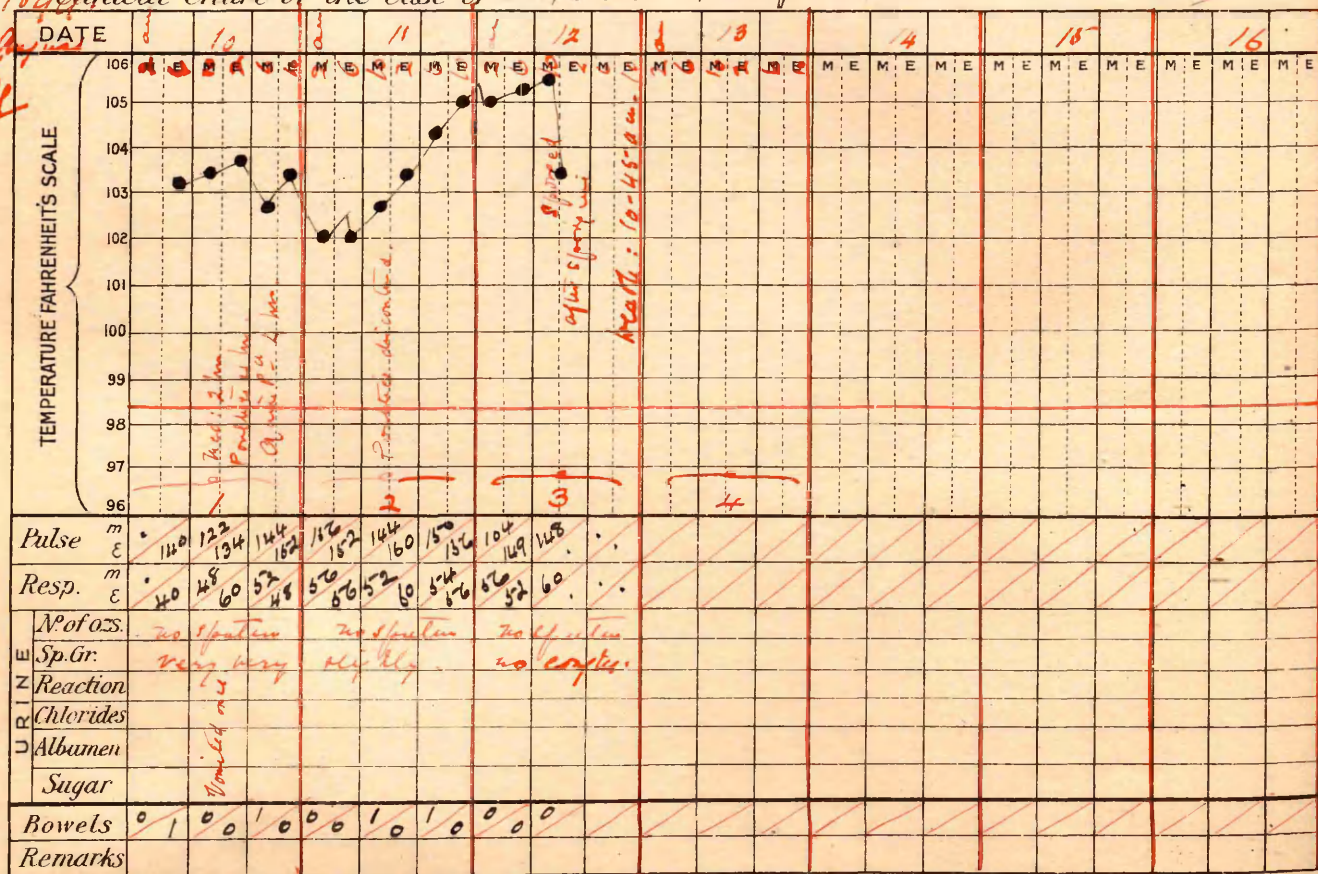 Chart of the case of
DATE 10 11 12 13 14 15 16
M E M E M E M E M E M E M E M E M E M E M E M E M E M E M E M E M E M E M E M E M E
TEMPERATURE FAHRENHEIT'S SCALE
106
105
104
103
102
101
100
99
98
97
96
Poultices discontinued.
Sponged
after sponging
Death: 10-45 a.m.
1 2 3 4
Pulse m . 122 144 156 144 150 104 148 .
E 140 134 152 152 160 156 149 . .
Resp. m . 48 52 56 52 54 56 60 .
E 40 60 48 56 60 56 52 . .
URINE
Nº of ozs. no sputum no sputum no sputum
Sp. Gr. very very slightly. no cough.
Reaction
Chlorides
Albumen
Sugar
Vomited once
Bowels 0 0 1 0 1 1 0 0
1 0 0 0 0 0 0
Remarks